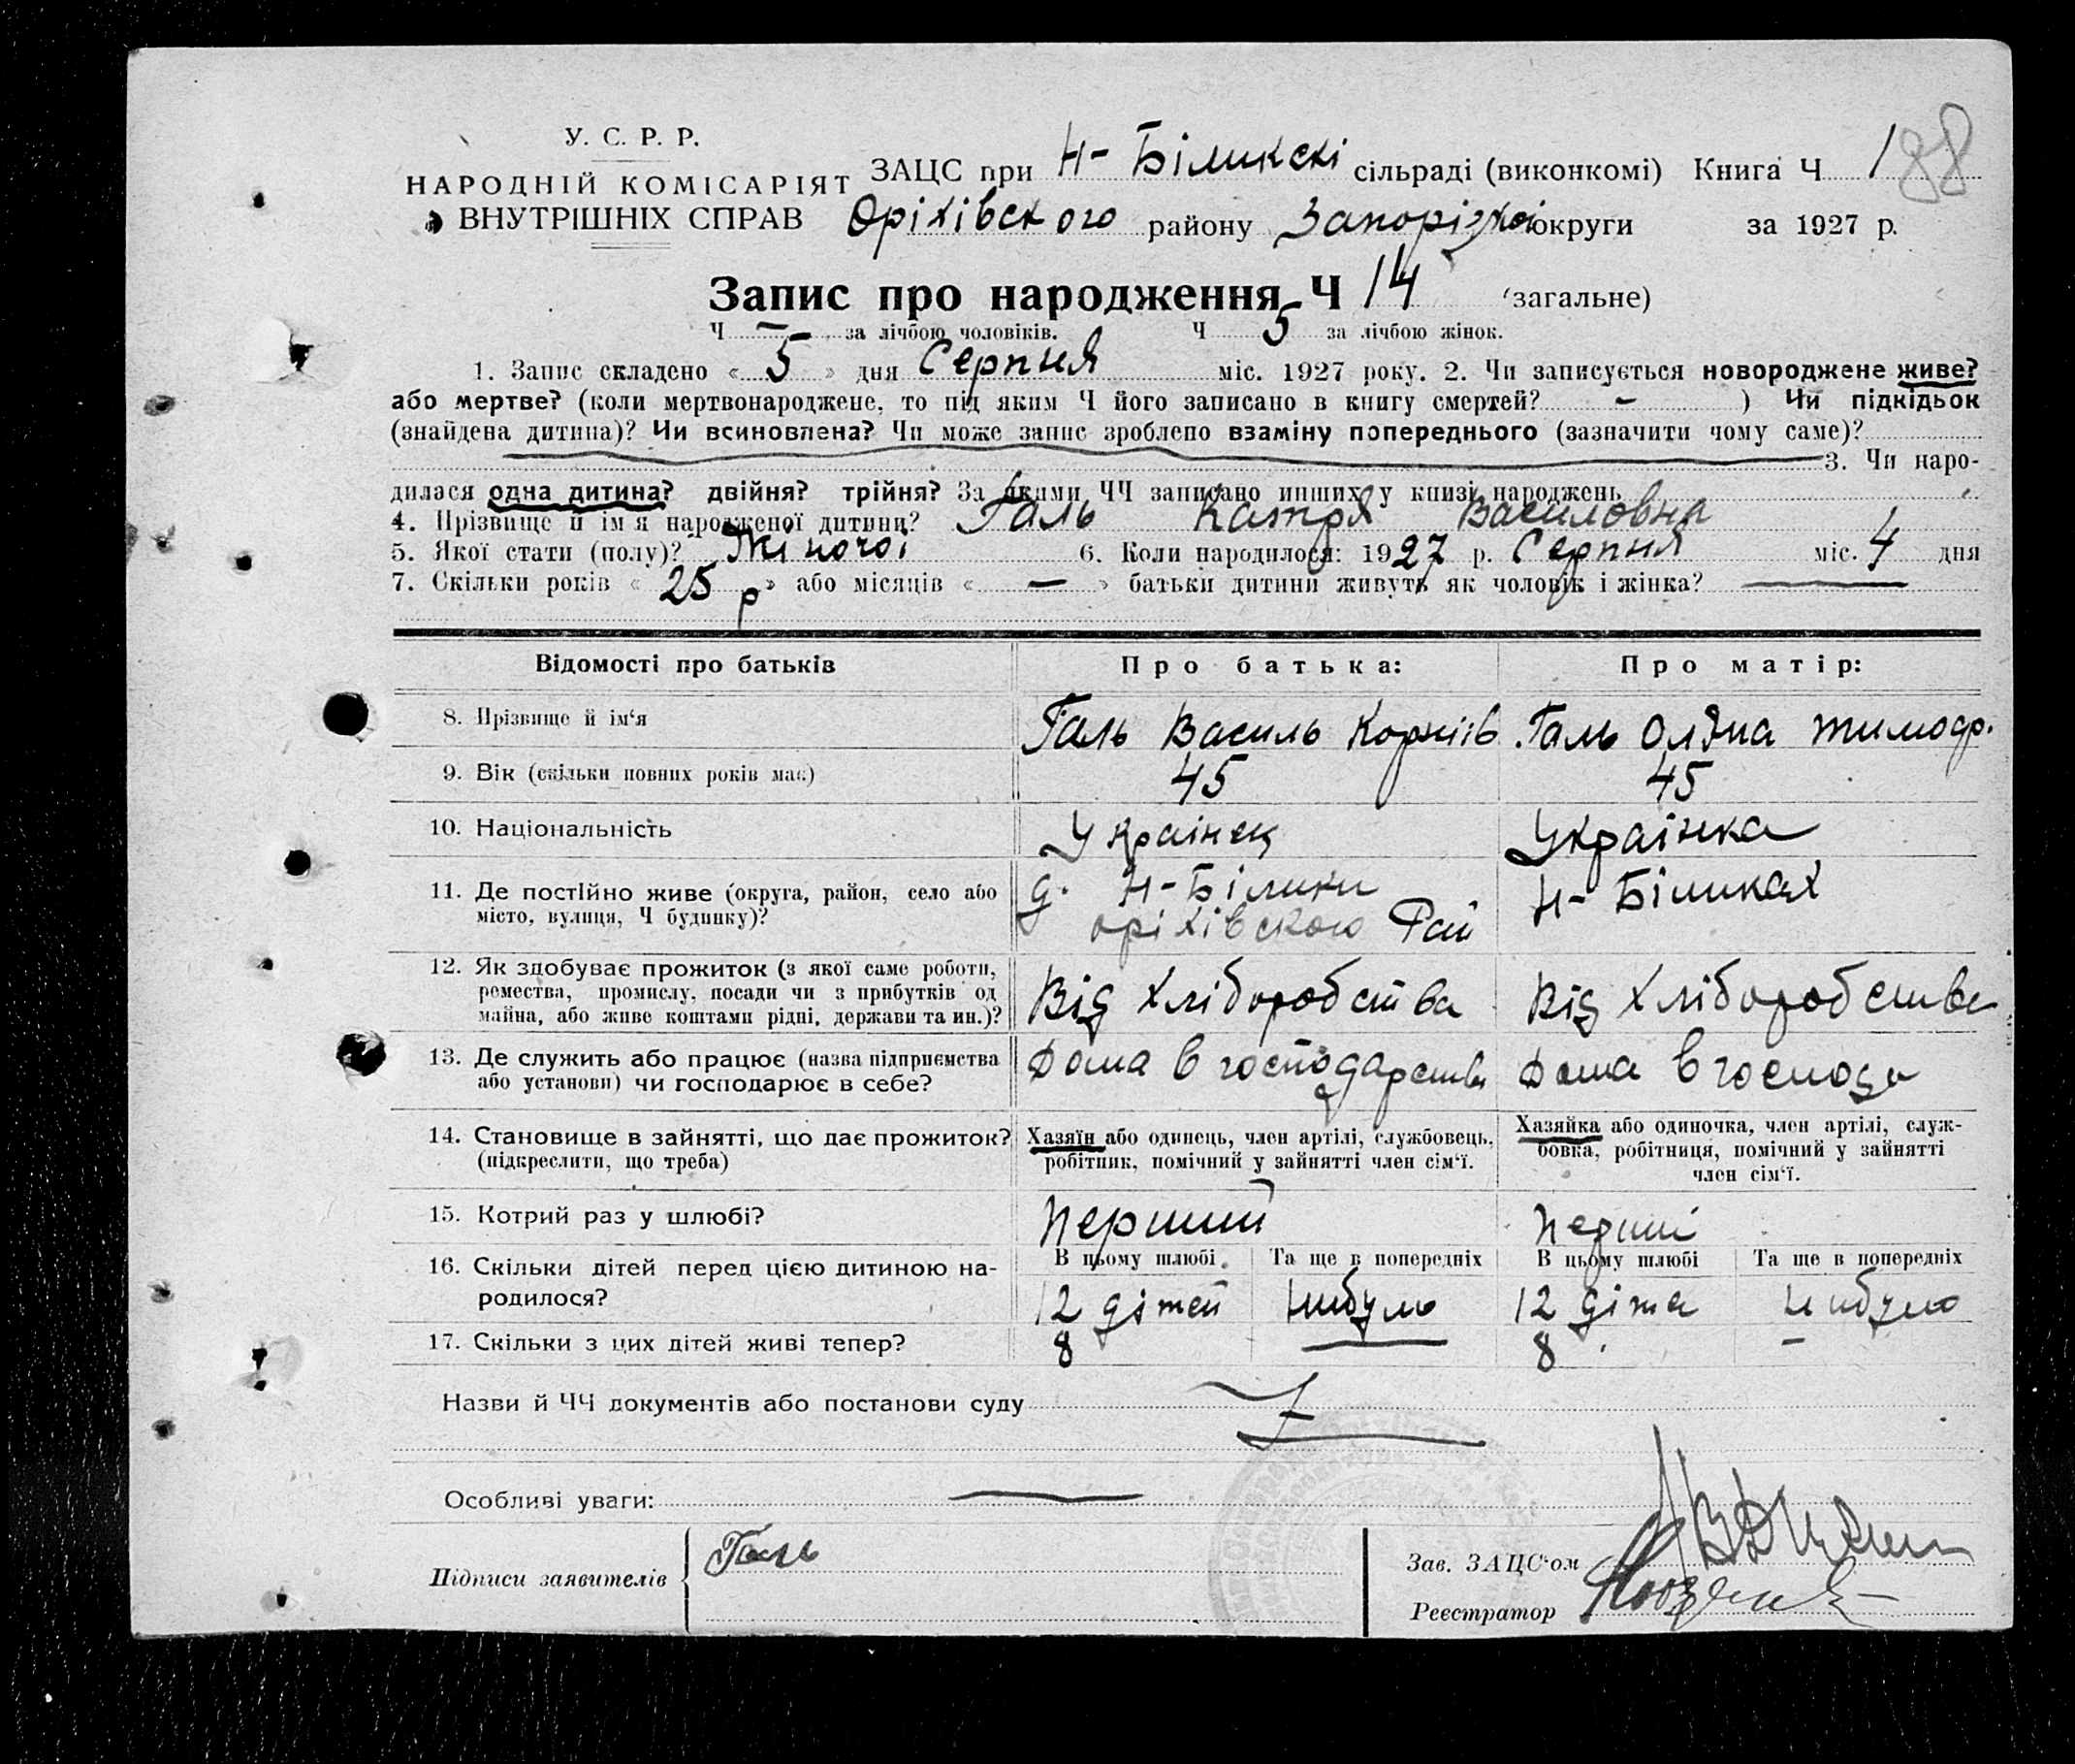 У. С. Р. Р.
НАРОДНІЙ КОМІСАРІЯТ
ВНУТРІШНІХ СПРАВ
ЗАЦС при Н-Біликскі сільраді (виконкомі) Книга Ч 1
188
Оріхівского району Запорізкої округи за 1927 р.
Запис про народження Ч 14 (загальне)
Ч — за лічбою чоловіків. Ч 5 за лічбою жінок.
1. Запис складено « 5 » дня Серпня міс. 1927 року. 2. Чи записується новороджене живе?
або мертве? (коли мертвонароджене, то під яким Ч його записано в книгу смертей? - ) Чи підкідьок
(знайдена дитина)? Чи всиновлена? Чи може запис зроблено взаміну попереднього (зазначити чому саме)?
3. Чи наро-
дилася одна дитина? двійня? трійня? За якими ЧЧ записано инших у книзі народжень
4. Прізвище й ім'я народженої дитини? Галь Катря Василовна
5. Якої стати (полу)? Жіночої 6. Коли народилося: 1927 р. Серпня міс. 4 дня
7. Скільки років « 25 р » або місяців « — » батьки дитини живуть як чоловік і жінка? —
Відомості про батьків Про батька: Про матір:
8. Прізвище й ім'я Галь Василь Корніїв Галь Оляна Тимофр.
9. Вік (скільки повних років має) 45 45
10. Національність Українец Українка
11. Де постійно живе (округа, район, село або
місто, вулиця, Ч будинку)? д. Н-Білики
оріхівского Рай Н-Біликах
12. Як здобуває прожиток (з якої саме роботи,
ремества, промислу, посади чи з прибутків од
майна, або живе коштами рідні, держави та ин.)? Від хліборобства Від хліборобства
13. Де служить або працює (назва підприємства
або установи) чи господарює в себе? Дома в господарстві Дома в господ
14. Становище в зайнятті, що дає прожиток?
(підкреслити, що треба)
Хазяїн або одинець, член артілі, службовець,
робітник, помічний у зайнятті член сім'ї.
Хазяйка або одиночка, член артілі, служ-
бовка, робітниця, помічний у зайнятті
член сім'ї.
15. Котрий раз у шлюбі? Перший Перший
16. Скільки дітей перед цією дитиною на-
родилося?
В цьому шлюбі Та ще в попередніх В цьому шлюбі Та ще в попередніх
12 дітей Нибуло 12 діте Нибуло
17. Скільки з цих дітей живі тепер? 8 — 8 –
Назви й ЧЧ документів або постанови суду
Особливі уваги: —
Підписи заявителів Галь
Зав. ЗАЦС'ом
Реєстратор